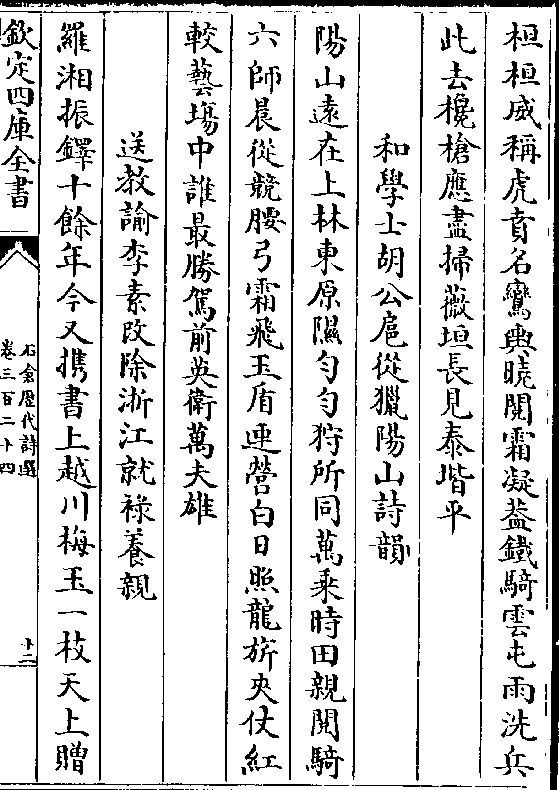 桓桓威稱虎賁名鸞輿曉閱霜凝葢鐵騎雲屯雨洗兵
此去欃槍應盡掃薇垣長見泰堦平
和學士胡公扈從獵陽山詩韻
陽山遠在上林東原隰勻勻狩所同萬乘時田親閱騎
六師晨從競腰弓霜飛玉盾連營白日照龍旂夾仗紅
較藝塲中誰最勝駕前英衛萬夫雄
送教諭李素改除浙江就祿養親
羅湘振鐸十餘年今又攜書上越川梅玉一枝天上贈
欽定四庫全書
石倉歷代詩選
卷三百二十四
十二